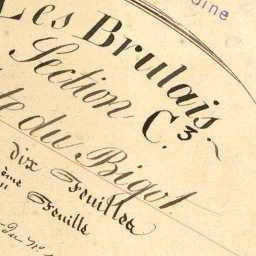 Les Brulais.
Section C.3
du Bigot
dix Feuilles
ème Feuille